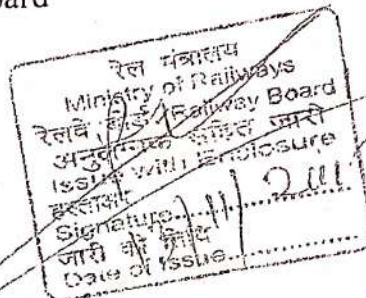 oard
रेल मंत्रालय
Ministry of Railways
रेलवे बोर्ड/Railway Board
अनुलग्नक सहित जारी
Issue with Enclosure
हस्ताक्षर
Signature
जारी की तिथि
Date of Issue